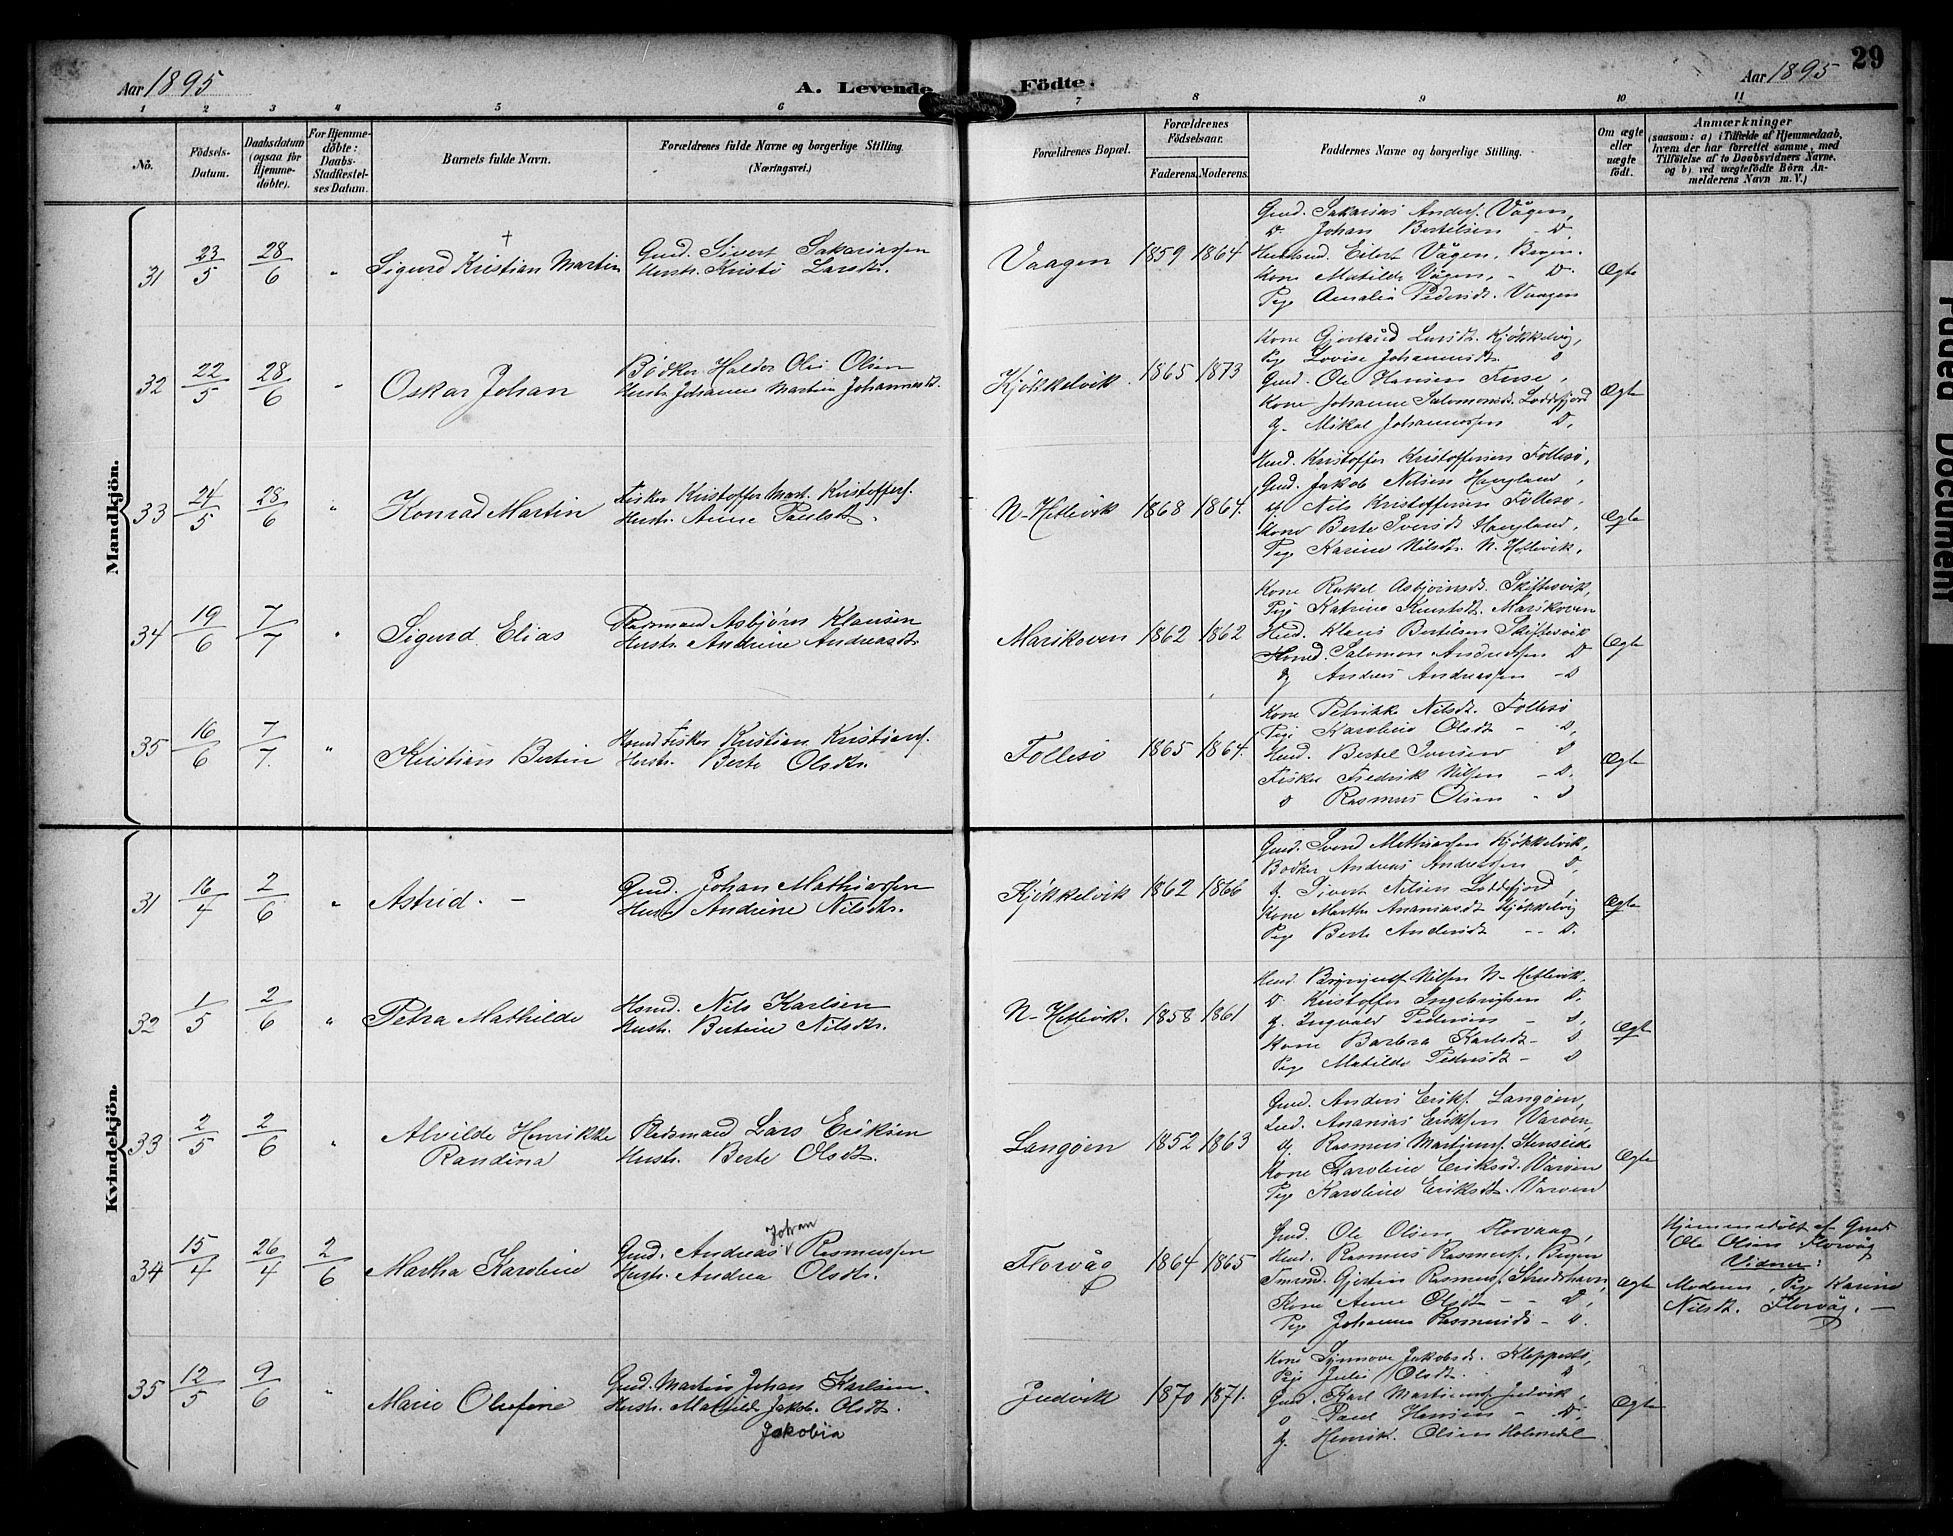 29
Aar 1895
A. Levende Födte.
Aar 1895
1 2 3 4 5 6 7 8 9 10 11
No.
Födsels-Datum.
Daabsdatum (ogsaa for Hjemme-döbte).
For Hjemme-döbte: Daabs-Stadfestel-ses Datum.
Barnets fulde Navn.
Forældrenes fulde Navne og borgerlige Stilling. (Næringsvei.)
Forældrenes Bopæl.
Forældrenes Födselsaar.
Faderens. Moderens.
Faddernes Navne og borgerlige Stilling.
Om ægte eller uægte födt.
Anmærkninger
(saasom: a) i Tilfælde af Hjemmedaab, hvem der har forrettet samme, med Tilföielse af to Daabsvidners Navne. og b) ved uægtefödte Börn An-melderens Navn m. V.)
Mandkjön.
31 23/5 28/6 " Sigurd Kristian Martin †
Gmd. Sivert Sakariassen
Hustr. Kristi Larsdt.
Vaagen 1859 1864
Gmd. Sakarias Anders. Vågen,
D Johan Bertelsen - D.
Eilert Vågen, Bergen.
Kone Matilde Vågen, - D.
Pige Amalia Pedersdt. Vaagen
Ægte
32 22/5 28/6 " Oskar Johan
Bödker Haldor Olai Olsen
Hustr. Johanne Martin Johannesdt.
Kjökkelvik. 1865 1873
Kone Gjertrud Larsdt. Kjökkelvig,
Pige Lovise Johannesdt. D
Gmd. Ole Hansen
Kone Johanne Salomonsdt. Loddefjord
g. Mikal Johannessen D.
Ægte
33 24/5 28/6 " Konrad Martin
Fisker Kristoffer Mart. Kristoffers.
Hustr. Anne Paulsdt.
N-Hetlevik 1868 1864.
Hmd. Kristoffer Kristoffersen Follesö,
Gmd. Jakob Nilsen Haugland,
g. Nils Kristoffersen Follesö.
Kone Berte Iversdt Haugland,
Pige Karine Nilsdt. N. Hetlevik,
Ægte
34 19/6 7/7 " Sigurd Elias
Pladsmand Asbjörn Klausen
Hustr. Andrine Andreasdt.
Marikoven 1862 1862
Kone Rakel Asbjörnsdt. Skiftesvik,
Pige Katrine Knutsdt. Marikoven
Hmd. Klaus Bertelsen Skiftesvik
Salomon Andreassen D
g Andreas Andreassen - D
Ægte
35 16/6 7/7. " Kristian Bertin
Hmd Fisker Kristian Kristians.
Hustr. Berte Olsdtr.
Follesö 1865 1864.
Kone Petrikke Nilsdt. Follesö
Pige Karoline Olsdt - D,
Hmd. Bertel Iversen D
Fisker Fredrik Nilsen - D.
D Rasmus Olsen - D
Ægte
Kvindekjön.
31 16/4 2/6 " Astrid. -
Gmd. Johan Mathiassen
Hustr. Andrine Nilsdtr.
Kjökkelvik 1862 1866
Gmd. Svend Mathiassen Kjökkelvik,
Bödker Andreas Andreassen D,
g. Sivert Nilsen Loddefjord,
Kone Martha Ananiasdt Kjökkelvig
Pige Berte Andersdt - - D.
Ægte
32 1/5 2/6 " Petra Mathilde
Hsmd. Nils Karlsen
Hustr. Bertine Nilsdtr.
N-Hetlevik. 1858 1861
Hmd Brynjulf Nilsen N-Hetlevik.
D. Kristoffer Ingebrigtsen D.
g. Ingvald Pedersen - D,
Kone Barbra Karlsdt - D
Pige Matilde Pedersdt - D
Ægte
33 2/5 2/6 " Alvilde Henrikke Randina
Pladsmand Lars Eriksen
Hustr. Berte Olsdt.
Langöen 1852 1863
Gmd. Anders Eriks. Langöen,
Ananias Eriksen Varöen,
g. Rasmus Steinseide
Kone Karoline Eriksdt. Varöen
Pige Karoline Eriksdt. Varöen
Ægte
34 15/4 26/4 2/6 Martha Karoline
Johan
Gmd. Andreas V Rasmussen
Hustr. Andrea Olsdtr.
Florvåg 1864 1865
Gmd. Ole Olsen Florvaag,
Hmd. Rasmus Rasmuss. Bergen
Gjertin Rasmuss. Strudshavn,
Kone Anne Olsdt - - D,
Pige Johanna Rasmusdt - D.
Ægte
Hjemmedöbt af Gmd.
Ole Olsen Florvåg
Vidner:
Moderen, Pige Karine
Nilsdt. Florvåg. -
35 12/5 9/6 " Marie Olufine
Gmd. Martin Johan Karlsen.
Hustr. Mathilde Jakob. Olsdt.
Jakobia
Juvik 1870 1871.
Kone Synnove Jakobsdt. Kleppestö,
Pige Julie Olsdt. "
Gmd. Karl
D Paul Hansen - D.
g. Henrik Olsen Holmedal
Ægte
Faded Document